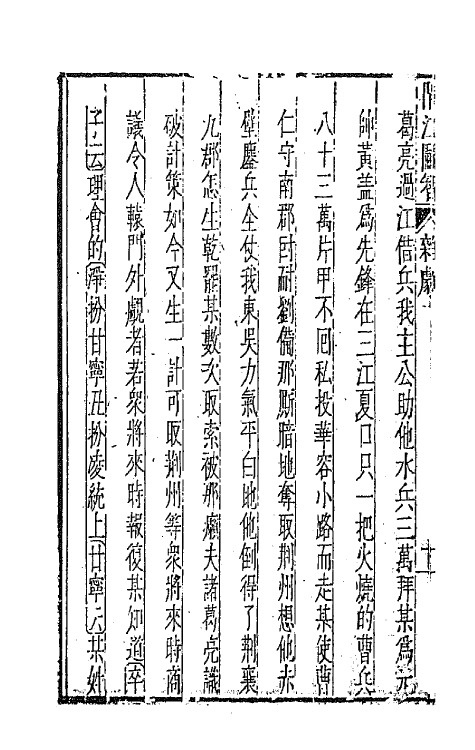 隔江鬭智 雜劇 十一
葛亮過江借兵我主公助他水兵三萬拜某爲元
帥黃蓋爲先鋒在三江夏口只一把火燒的曹兵
八十三萬片甲不回私投華容小路而走某使曹
仁守南郡叵耐劉備那厮暗地奪取荆州想他赤
壁鏖兵全仗我東吳力氣平白地他倒得了荆襄
九郡怎生乾罷某數次取索被那癩夫諸葛亮識
破計策如今又生一計可取荆州等衆將來時商
議令人轅門外覷者若衆將來時報復某知道卒
子云理會的淨扮甘寧丑扮凌統上甘寧云某姓